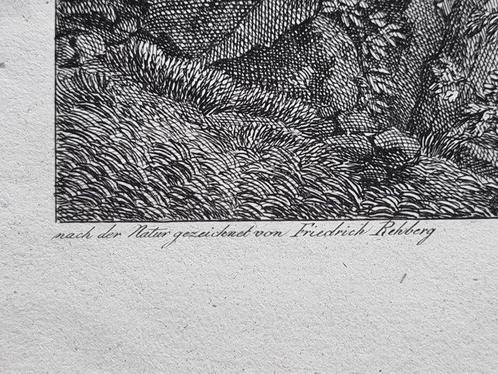 nach der Natur gezeichnet von Friedrich Rehberg